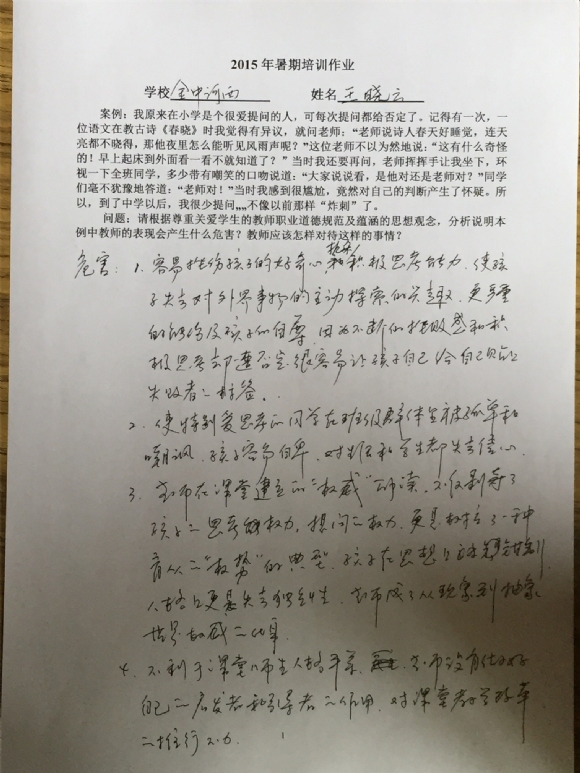 2015年暑期培训作业
学校 金中河西 姓名 王晓云
案例：我原来在小学是个很爱提问的人，可每次提问都给否定了。记得有一次，一
位语文在教古诗《春晓》时我觉得有异议，就问老师：“老师说诗人春天好睡觉，连天
亮都不晓得，那他夜里怎么能听见风雨声呢？”这位老师不以为然地说：“这有什么奇怪
的！早上起床到外面看一看不就知道了？”当时我还要再问，老师挥挥手让我坐下，环
视一下全班同学，多少带有嘲笑的口吻说道：“大家说说看，是他对还是老师对？”同学
们毫不犹豫地答道：“老师对！”当时我感到很尴尬，竟然对自己的判断产生了怀疑。所
以，到了中学以后，我很少提问……不像以前那样“炸刺”了。
问题：请根据尊重关爱学生的教师职业道德规范及蕴涵的思想观念，分析说明本
例中教师的表现会产生什么危害？教师应该怎样对待这样的事情？
危害：1. 容易挫伤孩子的好奇心和积极思考能力，使孩
子失去对外界事物的主动探索的兴趣，更严重
的能伤及孩子们自尊，因为不断的挫败感和积
极思考却遭否定很容易让孩子自己给自己贴
失败者之标签。
2. 使特别爱思考的同学在班级群体里被孤单和
嘲讽，孩子容易自卑，对老师和学生都失去信心。
3. 老师在课堂建立的“权威”，不仅剥夺了
孩子之思考的权力，提问之权力，更是树立了一种
盲从之“权势”的典型，孩子在思想上
人格上更是失去独立性，老师成了从现象到抽象
世界
4. 不利于课堂师生人格平等，老师没有做好
自己之启发者和引导者之作用，对课堂教学改革
之推行不力。